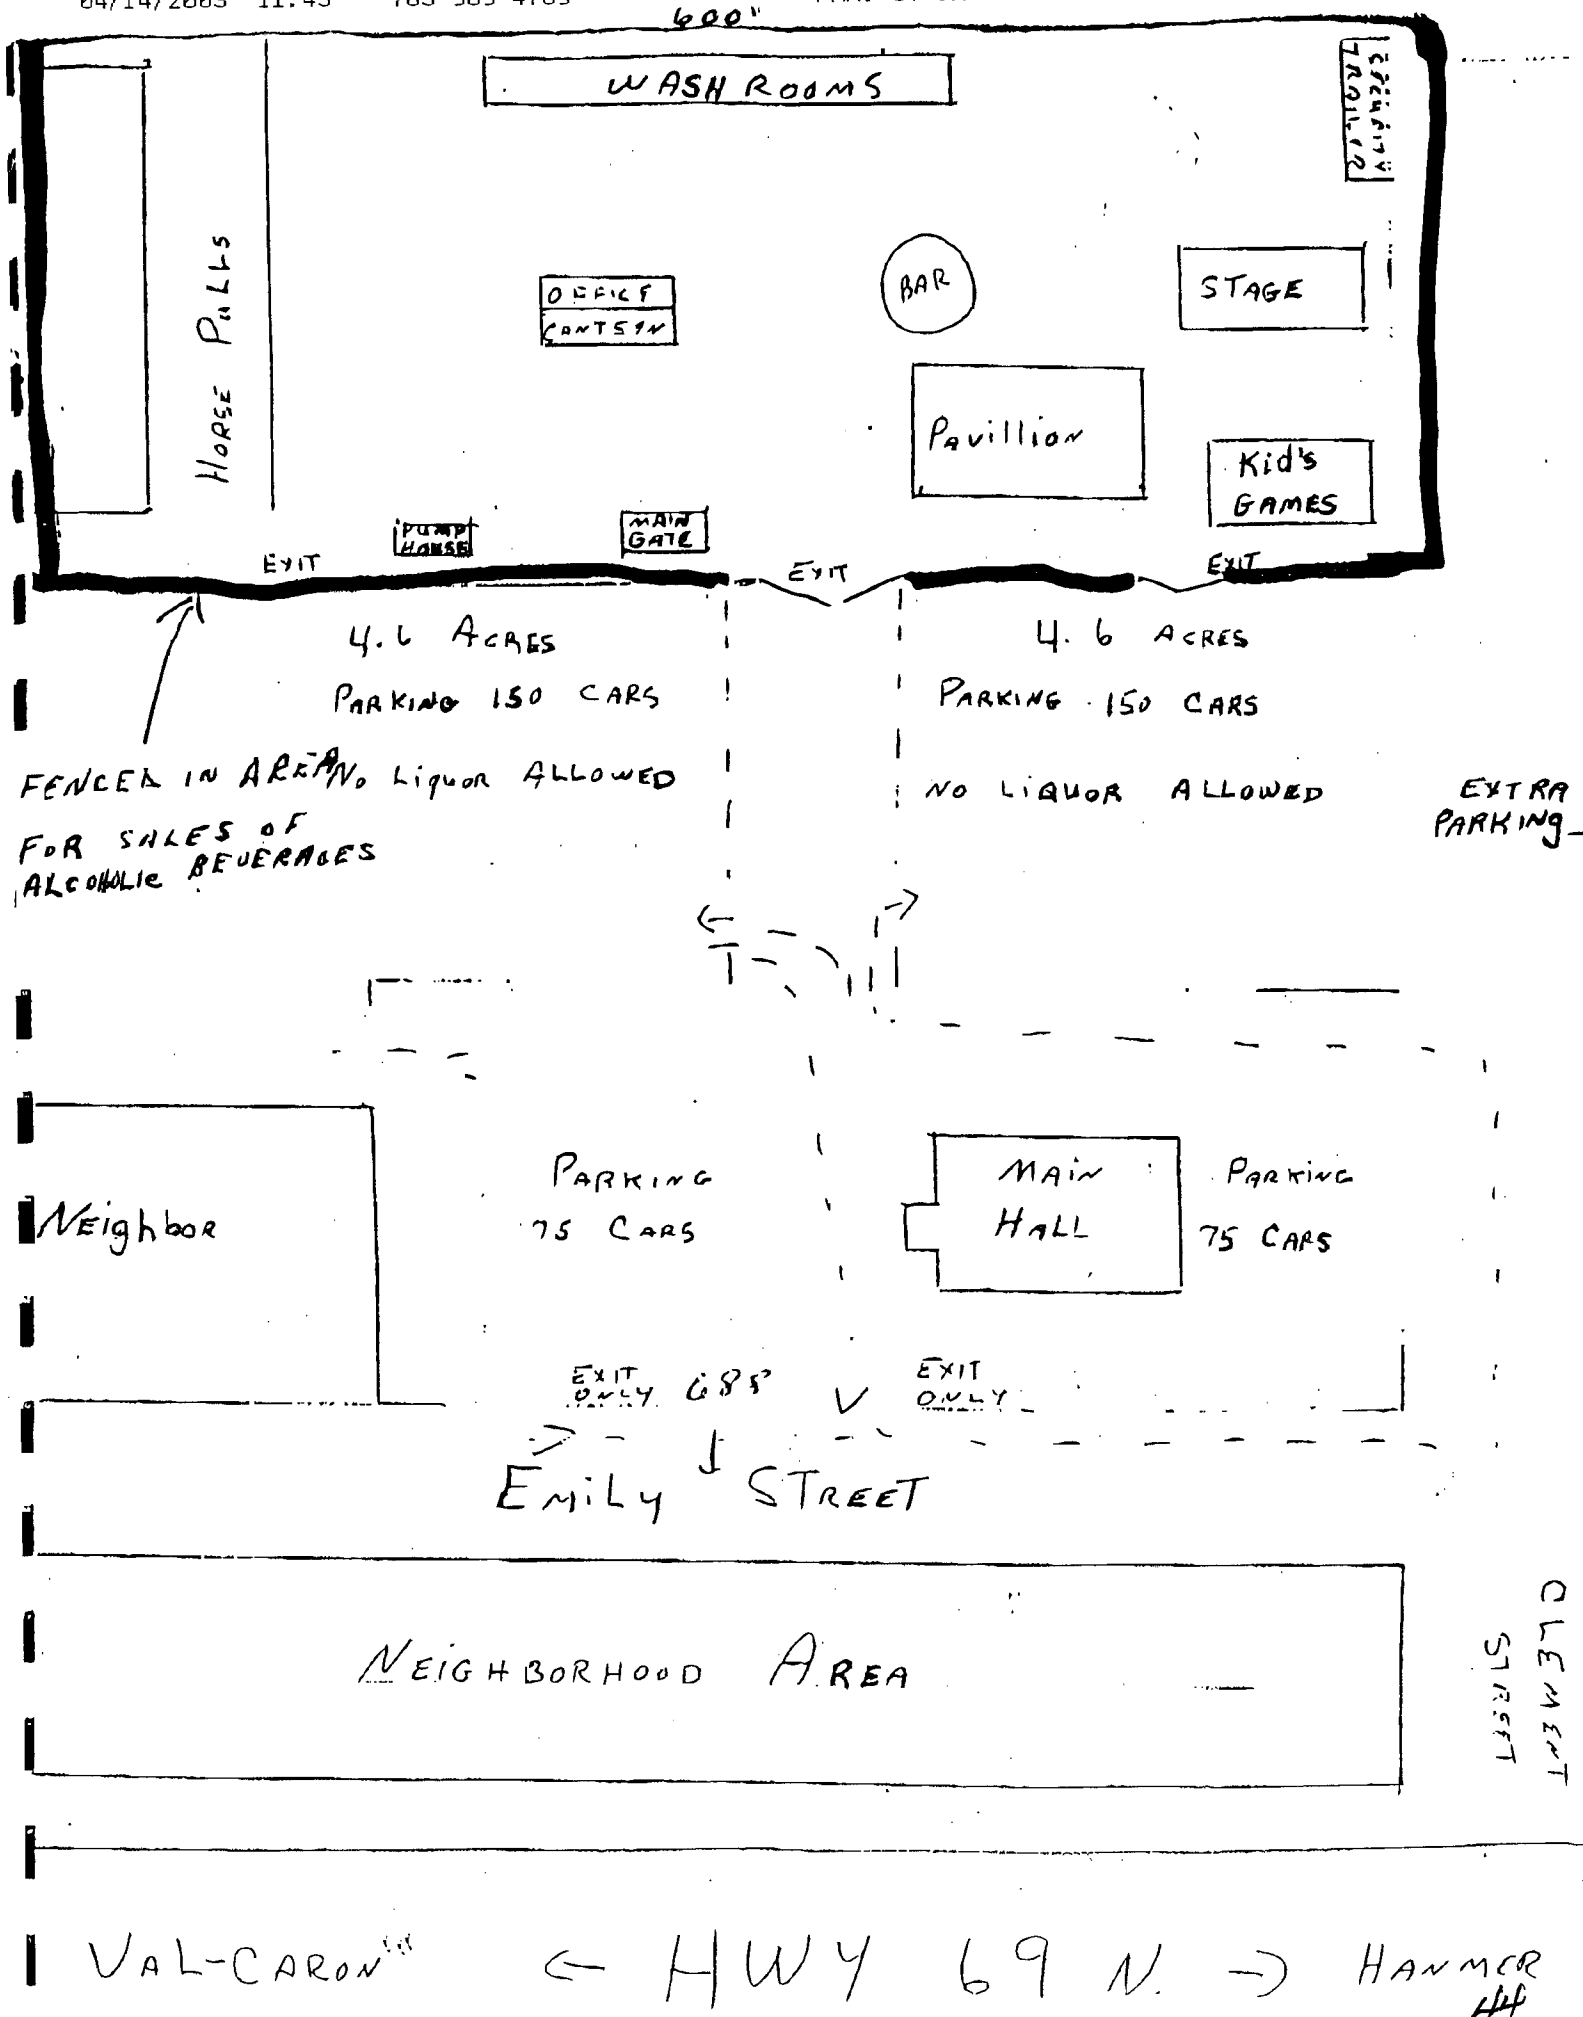 600"
WASH ROOMS
SECURITY
TRAILER
HORSE PULLS
OFFICE
CANTEEN
BAR
STAGE
Pavillion
Kid's
GAMES
PUMP
HOUSE
MAIN
GATE
EXIT
EXIT
EXIT
4.6 ACRES
4.6 ACRES
PARKING 150 CARS
PARKING 150 CARS
FENCED IN AREA
FOR SALES OF
ALCOHOLIC BEVERAGES
No Liquor ALLOWED
NO LIQUOR ALLOWED
EXTRA
PARKING
Neighbor
PARKING
75 CARS
MAIN
HALL
PARKING
75 CARS
EXIT
ONLY
EXIT
ONLY
Emily STREET
NEIGHBORHOOD AREA
CLEMENT
STREET
VAL-CARON
← HWY 69 N. →
HANMER
44